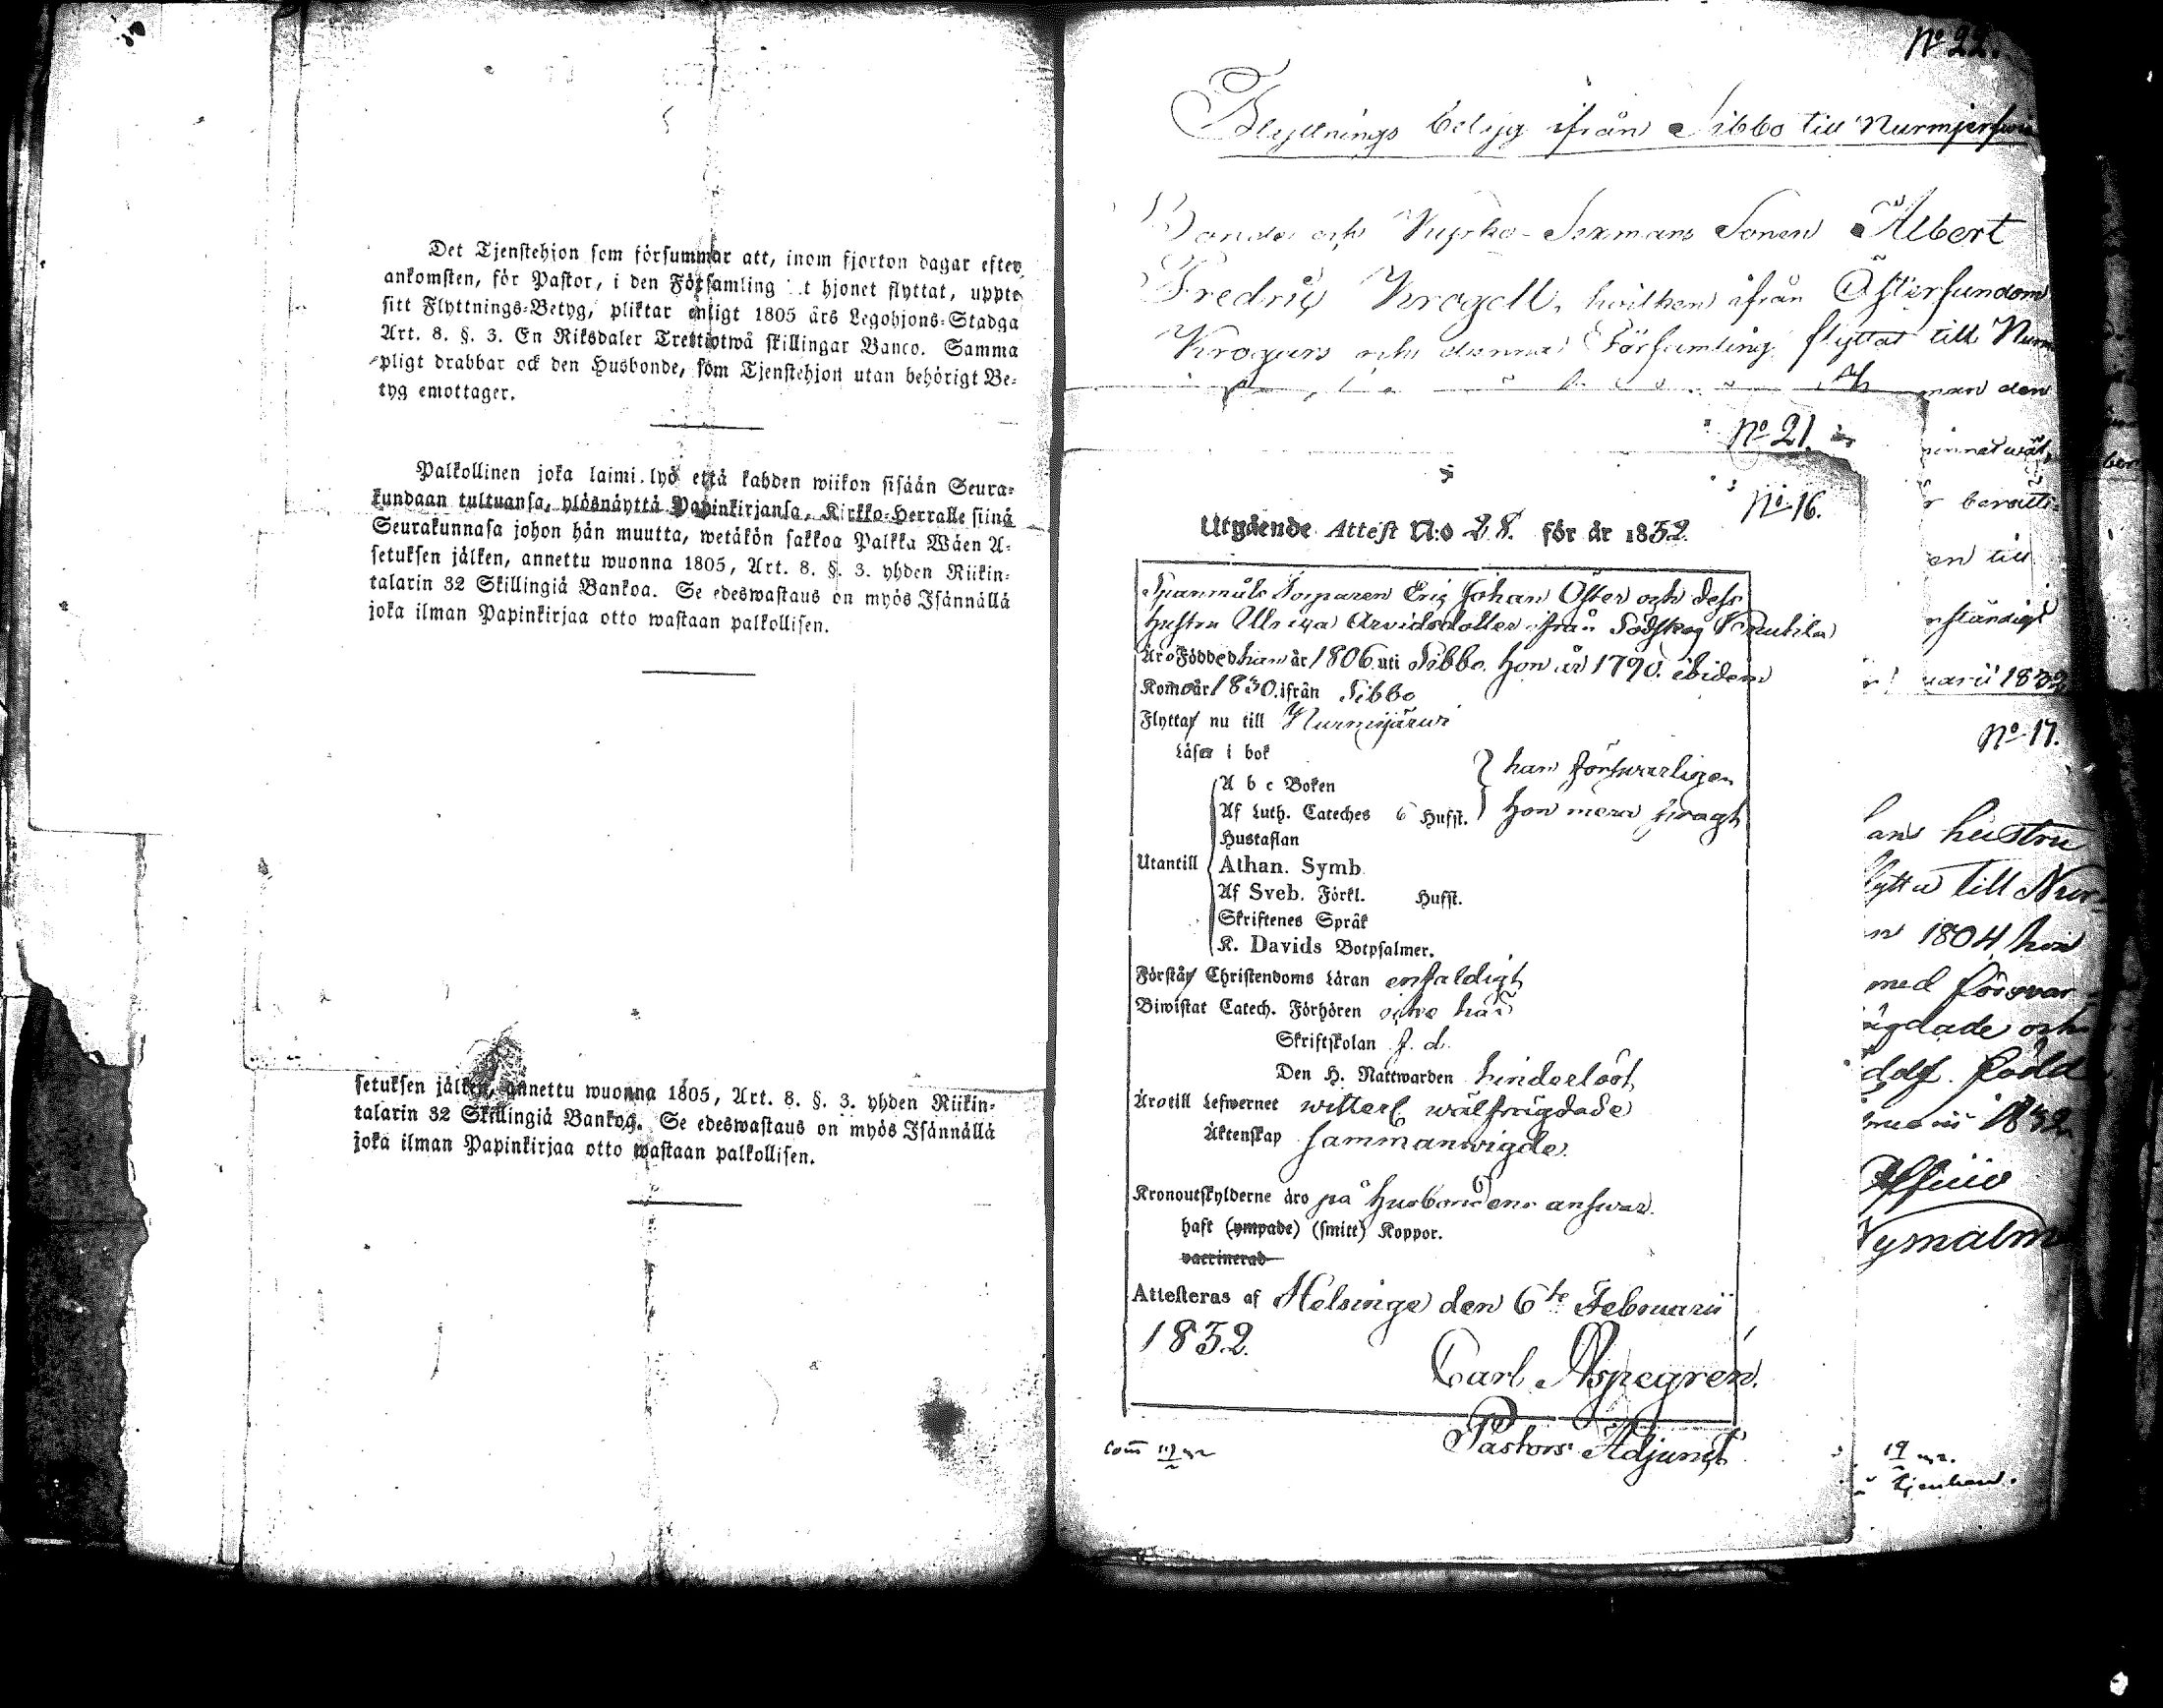 Det Tjenstehjon som försummar att, inom fjorton dagar efter
ankomsten, för Pastor, i den Församling t hjonet flyttat, uppte
sitt Flyttnings-Betyg, pliktar enligt 1805 års Legohjons-Stadga
Art. 8. §. 3. En Riksdaler Trettiotwå skillingar Banco. Samma
pligt drabbar ock den Husbonde, som Tjenstehjon utan behörigt Be-
tyg emottager.
Palkollinen joka laimi.lyö että kahden wiikon sisään Seura-
kundaan tultuansa, ylösnäyttä Papinkirjansa, Kirkko-Herralle siinä
Seurakunnasa johon hän muutta, wetäkön sakkoa Palkka Wäen A-
setuksen jälken, annettu wuonna 1805, Art. 8. §. 3. yhden Riikin-
talarin 32 Skillingiä Bankoa. Se edeswastaus on myös Isännällä
joka ilman Papinkirjaa otto wastaan palkollisen.
setuksen jälken, annettu wuonna 1805, Art. 8. §. 3. yhden Riikin-
talarin 32 Skillingiä Bankoa. Se edeswastaus on myös Isännällä
joka ilman Papinkirjaa otto wastaan palkollisen.
No 22.
Flyttnings betyg ifrån Sibbo till Nurmjerfwi
Bonde och Kyrko-Sexmans Sonen Albert
Fredric Krogell, hvilken ifrån Östersundom
Krogars och denna Församling flyttat till Nurm
man den
No 21.
No 16.
Utgående Attest N:o 28. för år 1832.
Spanmåls Torparen Eric Johan Öster och dess
hustru Ulrica Arvidsdotter ifrån Sodskog
Äro Födde han år 1806 uti Sibbo. hon år 1790. ibidem
Komo år 1830. ifrån Sibbo
Flytta nu till Nurmijärwi
Läsa i bok
A b c Boken
han försvarligen
Af Luth. Cateches 6 Hufst.
hon mera swagt
Hustaflan
Utantill
Athan. Symb.
Af Sveb. Förkl. Hufst.
Skriftenes Språk
K. Davids Botpsalmer.
Förstå Christendoms Läran enfaldigt
Biwistat Catech. Förhören icke här
Skriftskolan f. d.
Den H. Nattwarden hinderlöst
Äro till Lefwernet witterl. wälfrägdade
Äktenskap sammanwigde.
Kronoutskylderne äro på Husbondens answar.
haft (ympade) (smitt) Koppor.
vaccinerad
Attesteras af Helsinge den 6te Februarii
1832.
Carl Aspegren.
Pastors Adjunct
ständigt
uarii 1832
No 17.
ans hustru
lytta till Nur-
n 1804, hon
med försvar-
ägdade och
ddf. född
1832
Nymalm